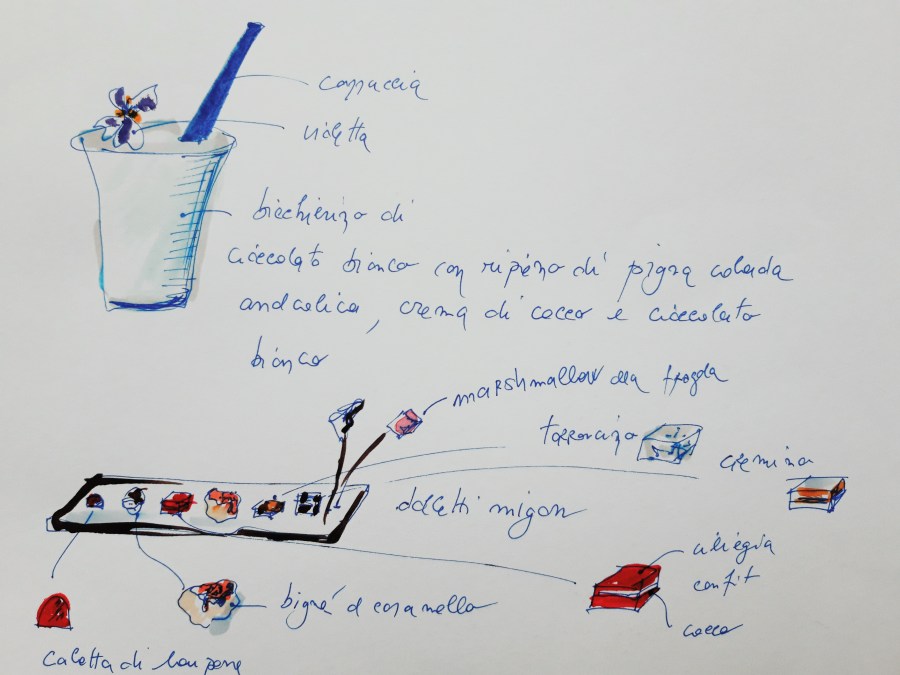 cannuccia
violetta
bicchierino di
cioccolato bianco con ripieno di pigna colada
analcolica, crema di cocco e cioccolato
bianco
marshmallow alla fragola
torroncino
cremino
dolcetti mignon
ciliegia
confit
bignè al caramello
cocco
di lampone